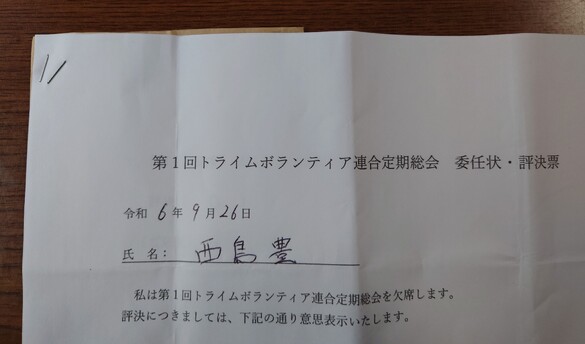 第1回トライムボランティア連合定期総会　委任状・評決票
令和 6年 9月26日
氏　名： 西島豊
私は第1回トライムボランティア連合定期総会を欠席します。
評決につきましては、下記の通り意思表示いたします。